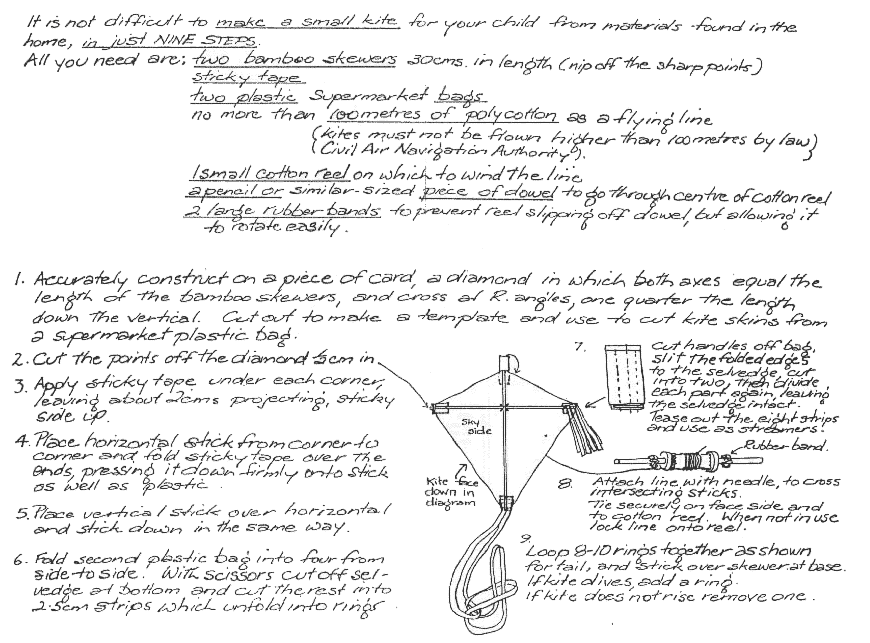 It is not difficult to make a small kite for your child from materials found in the
home, in just NINE STEPS.
All you need are; two bamboo skewers 30cms. in length (nip off the sharp points)
sticky tape
two plastic supermarket bags
no more than 100 metres of polycotton as a flying line
(kites must not be flown higher than 100 metres by law)
(Civil Air Navigation Authority).
1 small cotton reel on which to wind the line
a pencil or similar-sized piece of dowel to go through centre of cotton reel
2 large rubber bands to prevent reel slipping off dowel, but allowing it
to rotate easily.
1. Accurately construct on a piece of card, a diamond in which both axes equal the
length of the bamboo skewers, and cross at R. angles, one quarter the length
down the vertical. Cut out to make a template and use to cut kite skins from
a supermarket plastic bag.
2. Cut the points off the diamond .5cm in.
3. Apply sticky tape under each corner,
leaving about 2cms projecting, sticky
side up.
4. Place horizontal stick from corner to
corner and fold sticky tape over the
ends, pressing it down firmly onto stick
as well as plastic.
5. Place vertical stick over horizontal
and stick down in the same way.
6. Fold second plastic bag into four from
side to side. With scissors cut off sel-
vedge at bottom and cut the rest into
2.5cm strips which unfold into rings
Sky
side
Kite face
down in
diagram
7. Cut handles off bag,
slit the folded edges
to the selvedge, cut
into two, then divide
each part again, leaving
the selvedge intact.
Tease out the eight strips
and use as streamers.
Rubber band.
8. Attach line, with needle, to cross
intersecting sticks.
Tie securely on face side and
to cotton reel. When not in use
lock line onto reel.
9.
Loop 8-10 rings together as shown
for tail, and stick over skewer at base.
If kite dives, add a ring.
If kite does not rise remove one.